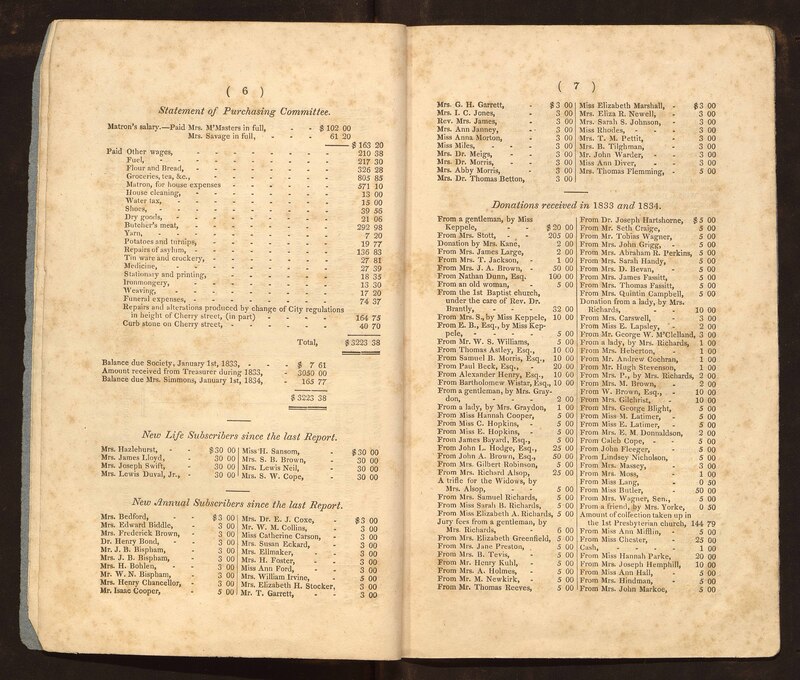 ( 6 )
Statement of Purchasing Committee.
Matron's salary.—Paid Mrs. M'Masters in full, - - $ 102 00
Mrs. Savage in full, - - 61 20
$ 163 20
Paid Other wages, 210 38
Fuel, 217 30
Flour and Bread, 326 28
Groceries, tea, &c., 805 85
Matron, for house expenses 571 10
House cleaning, 13 00
Water tax, 15 00
Shoes, 39 56
Dry goods, 21 06
Butcher's meat, 292 98
Yarn, 7 20
Potatoes and turnips, 19 77
Repairs of asylum, 136 83
Tin ware and crockery, 27 81
Medicine, 27 39
Stationary and printing, 18 35
Ironmongery, 13 30
Weaving, 17 20
Funeral expenses, 74 37
Repairs and alterations produced by change of City regulations
in height of Cherry street, (in part) 164 75
Curb stone on Cherry street, 40 70
Total, $3223 38
Balance due Society, January 1st, 1833, - - $ 7 61
Amount received from Treasurer during 1833, - 3050 00
Balance due Mrs. Simmons, January 1st, 1834, - 165 77
$ 3223 38
New Life Subscribers since the last Report.
Mrs. Hazlehurst, - - $30 00
Mrs. James Lloyd, - 30 00
Mrs. Joseph Swift, - 30 00
Mrs. Lewis Duval, Jr., - 30 00
Miss H. Sansom, - - $30 00
Mrs. S. B. Brown, - 30 00
Mrs. Lewis Neil, - 30 00
Mrs. S. W. Cope, - 30 00
New Annual Subscribers since the last Report.
Mrs. Bedford, - - $3 00
Mrs. Edward Biddle, - 3 00
Mrs. Frederick Brown, - 3 00
Dr. Henry Bond, - 3 00
Mr. J. B. Bispham, - 3 00
Mrs. J. B. Bispham, - 3 00
Mrs. H. Bohlen, - 3 00
Mr. W. N. Bispham, - 3 00
Mrs. Henry Chancellor, - 3 00
Mr. Isaac Cooper, - 5 00
Mrs. Dr. E. J. Coxe, - $3 00
Mr. W. M. Collins, - 3 00
Miss Catherine Carson, - 3 00
Mrs. Susan Eckard, - 3 00
Mrs. Ellmaker, - - 3 00
Mrs. H. Foster, - - 3 00
Miss Ann Ford, - - 3 00
Mrs. William Irvine, - 5 00
Mrs. Elizabeth H. Stocker, 3 00
Mr. T. Garrett, - - 3 00
( 7 )
Mrs. G. H. Garrett, - $3 00
Mrs. I. C. Jones, - 3 00
Rev. Mrs. James, - 3 00
Mrs. Ann Janney, - 3 00
Miss Anna Morton, - 3 00
Miss Miles, - - 3 00
Mrs. Dr. Meigs, - - 3 00
Mrs. Dr. Morris, - - 3 00
Mrs. Abby Morris, - 3 00
Mrs. Dr. Thomas Betton, 3 00
Miss Elizabeth Marshall, - $3 00
Mrs. Eliza R. Newell, - 3 00
Mrs. Sarah S. Johnson, - 3 00
Miss Rhodes, - - - 3 00
Mrs. T. M. Pettit, - 3 00
Mrs. B. Tilghman, - 3 00
Mr. John Warder, - 3 00
Miss Ann Diver, - 3 00
Mrs. Thomas Flemming, - 5 00
Donations received in 1833 and 1834.
From a gentleman, by Miss
Keppele, - - $ 20 00
From Mrs. Stott, - 205 00
Donation by Mrs. Kane, 2 00
From Mrs. James Large, 2 00
From Mrs. T. Jackson, 1 00
From Mrs. J. A. Brown, - 50 00
From Nathan Dunn, Esq. 100 00
From an old woman, - 5 00
From the 1st Baptist church,
under the care of Rev. Dr.
Brantly, - - 32 00
From Mrs. S., by Miss Keppele, 10 00
From E. B., Esq., by Miss Kep-
pele, - - - 5 00
From Mr. W. S. Williams, 5 00
From Thomas Astley, Esq., - 10 00
From Samuel B. Morris, Esq., 10 00
From Paul Beck, Esq., - 20 00
From Alexander Henry, Esq., 10 00
From Bartholomew Wistar, Esq., 10 00
From a gentleman, by Mrs. Gray-
don, - - - 2 00
From a lady, by Mrs. Graydon, 1 00
From Miss Hannah Cooper, 5 00
From Miss C. Hopkins, - 5 00
From Miss E. Hopkins, - 5 00
From James Bayard, Esq., 5 00
From John L. Hodge, Esq., 25 00
From John A. Brown, Esq., 50 00
From Mrs. Gilbert Robinson, 5 00
From Mrs. Richard Alsop, 25 00
A trifle for the Widows, by
Mrs. Alsop, - - 5 00
From Mrs. Samuel Richards, 5 00
From Miss Sarah B. Richards, 5 00
From Miss Elizabeth A. Richards, 5 00
Jury fees from a gentleman, by
Mrs. Richards, - 6 00
From Mrs. Elizabeth Greenfield, 5 00
From Mrs. Jane Preston, - 5 00
From Mrs. B. Tevis, - 5 00
From Mr. Henry Kuhl, - 5 00
From Mrs. A. Holmes, - 5 00
From Mr. M. Newkirk, - 5 00
From Mr. Thomas Reeves, 5 00
From Dr. Joseph Hartshorne, $ 5 00
From Mr. Seth Craige, 5 00
From Mr. Tobias Wagner, 5 00
From Mrs. John Grigg, - 5 00
From Mrs. Abraham R. Perkins, 5 00
From Mrs. Sarah Handy, 5 00
From Mrs. D. Bevan, - 5 00
From Mrs. James Fassitt, - 5 00
From Mrs. Thomas Fassitt, 5 00
From Mrs. Quintin Campbell, 5 00
Donation from a lady, by Mrs.
Richards, - - 10 00
From Mrs. Carswell, - 3 00
From Miss E. Lapsley, - 2 00
From Mr. George W. M'Clelland, 3 00
From a lady, by Mrs. Richards, 1 00
From Mrs. Heberton, - 1 00
From Mr. Andrew Cochran, 1 00
From Mr. Hugh Stevenson, 1 00
From Mrs. P., by Mrs. Richards, 2 00
From Mrs. M. Brown, - 2 00
From W. Brown, Esq., - 10 00
From Mrs. Gilchrist, - 10 00
From Mrs. George Blight, 5 00
From Miss M. Latimer, - 5 00
From Miss E. Latimer, - 5 00
From Mrs. E. M. Donnaldson, 2 00
From Caleb Cope, - 5 00
From John Fleeger, - 5 00
From Lindsey Nicholson, - 5 00
From Mrs. Massey, - 3 00
From Mrs. Moss, - - 1 00
From Miss Lang, - 0 50
From Miss Butler, - 50 00
From Mrs. Wagner, Sen., - 5 00
From a friend, by Mrs. Yorke, 0 50
Amount of collection taken up in
the 1st Presbyterian church, 144 79
From Miss Ann Mifflin, - 5 00
From Miss Chester, - 25 00
Cash, - - - 1 00
From Miss Hannah Parke, 20 00
From Mrs. Joseph Hemphill, 10 00
From Miss Ann Hall, - 5 00
From Mrs. Hindman, - 5 00
From Mrs. John Markoe, 5 00